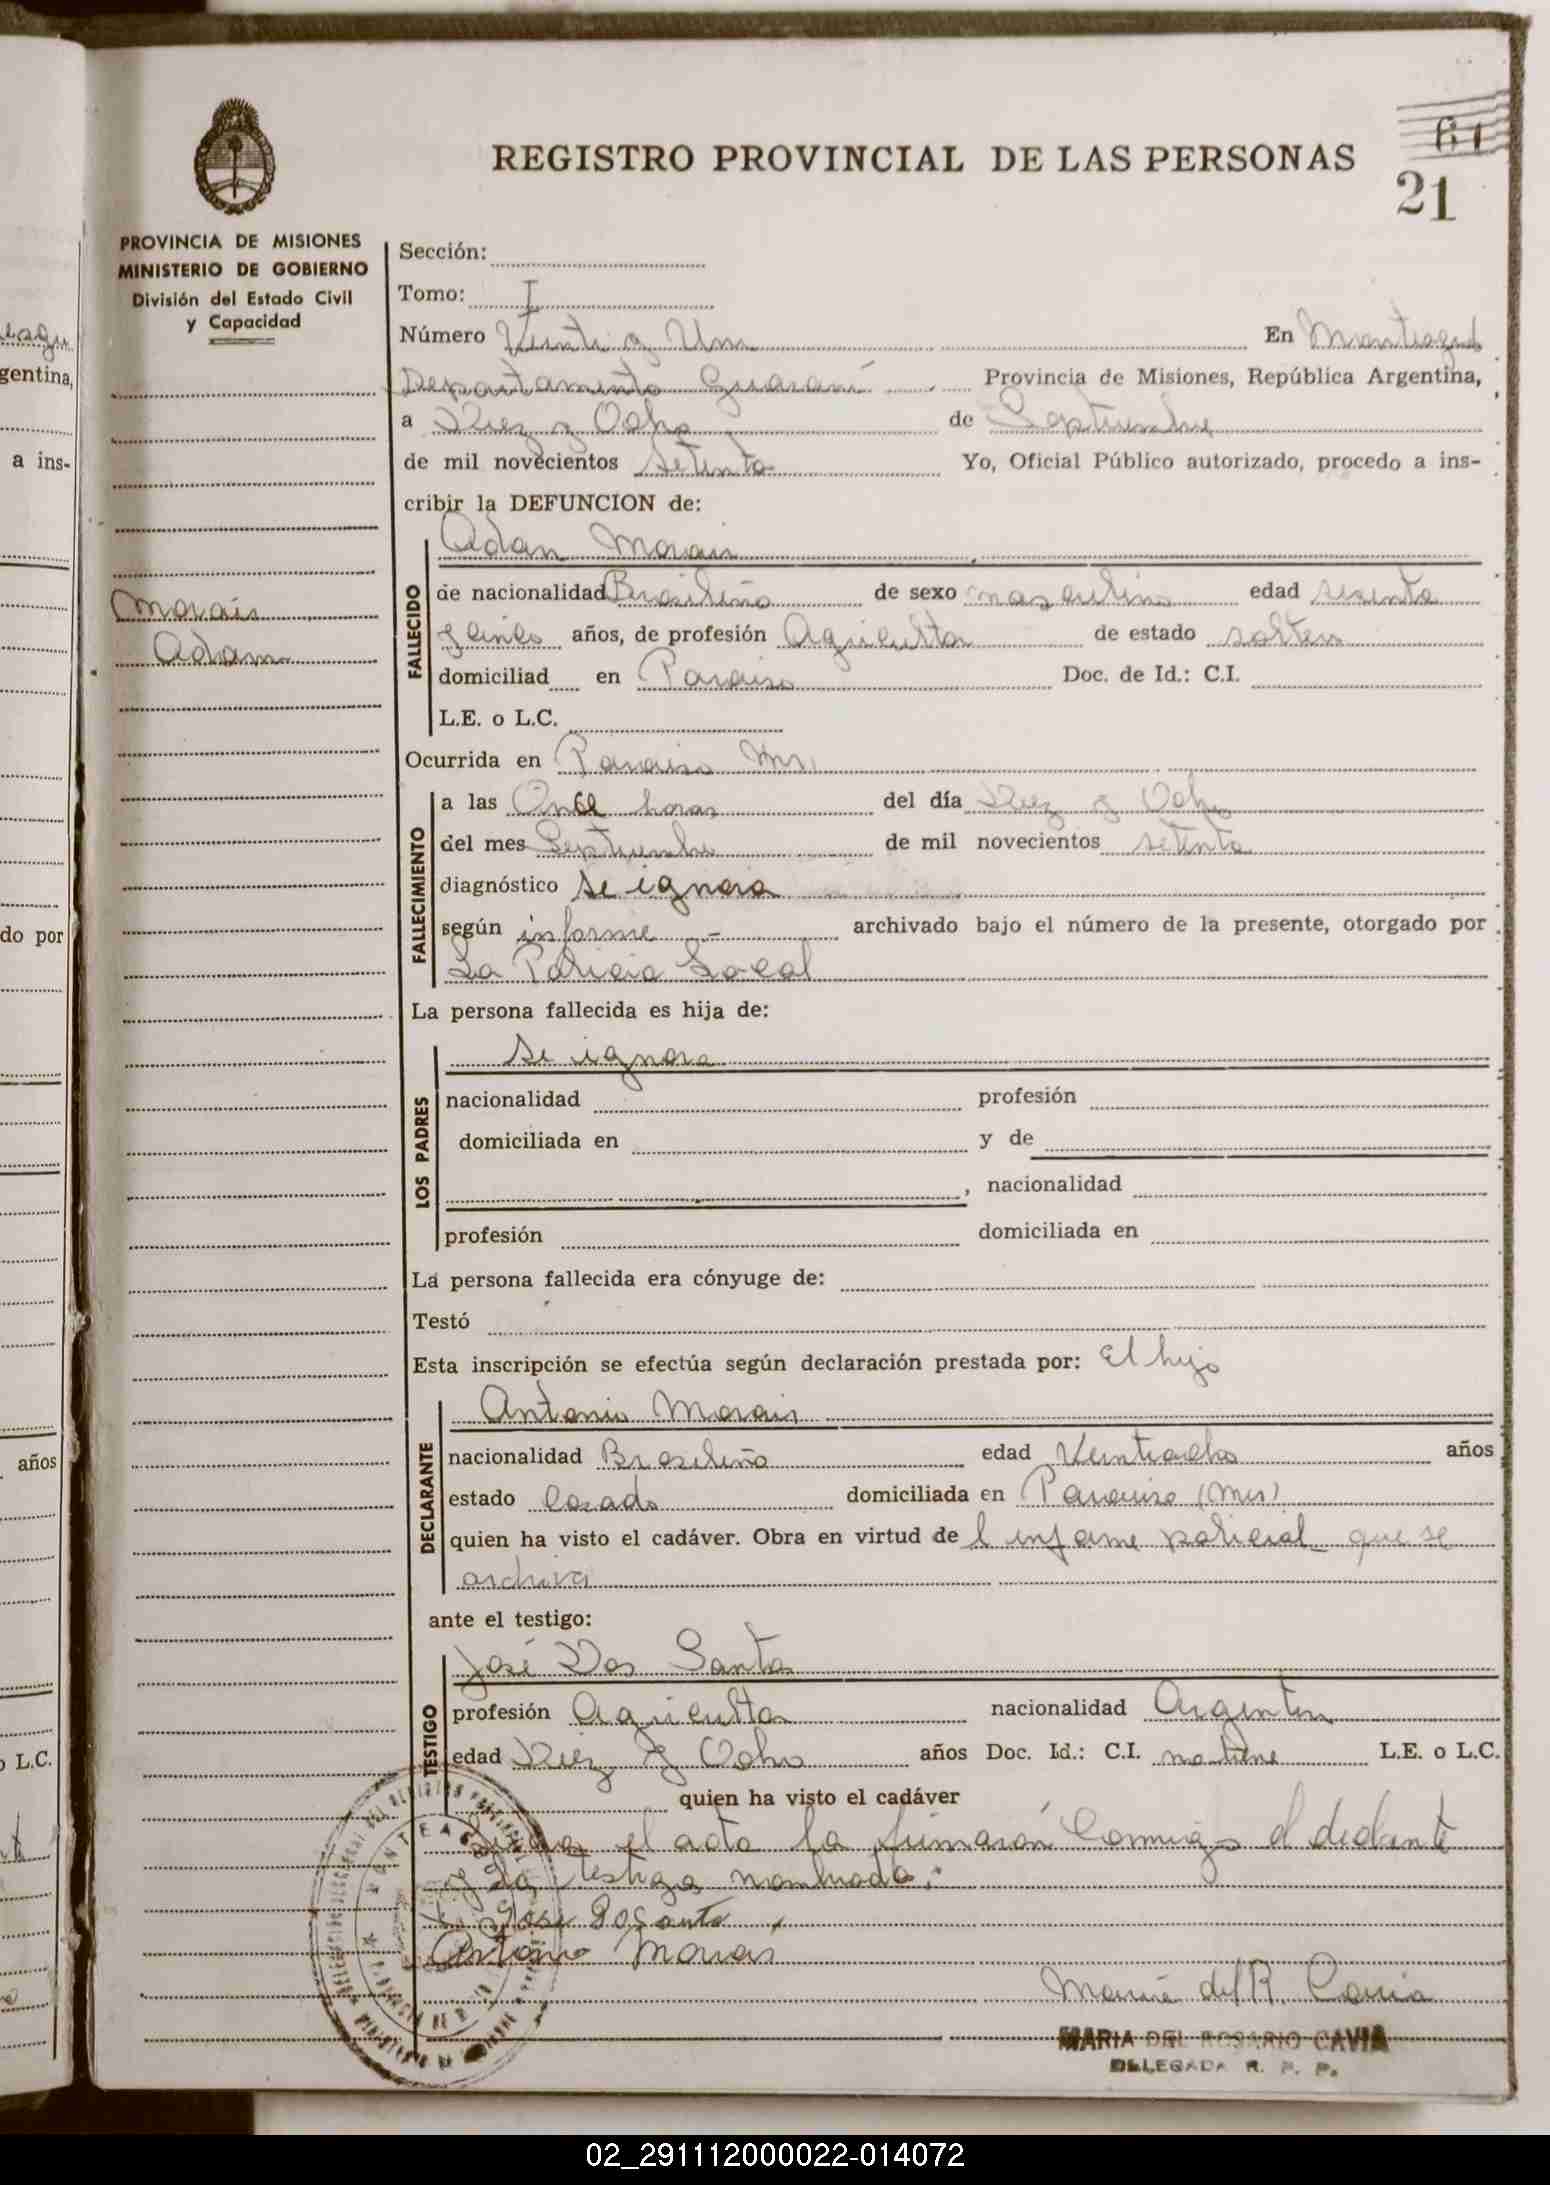 REGISTRO PROVINCIAL DE LAS PERSONAS
61
21
PROVINCIA DE MISIONES
MINISTERIO DE GOBIERNO
División del Estado Civil
y Capacidad
Morais
Adam
Sección:
Tomo: I
Número Veinti y Uno En Monteagudo
Departamento Guaraní Provincia de Misiones, República Argentina,
a Diez y Ocho de Septiembre
de mil novecientos setenta Yo, Oficial Público autorizado, procedo a ins-
cribir la DEFUNCION de:
Adan Morais
FALLECIDO
de nacionalidad Brasileño de sexo masculino edad sesenta
y cinco años, de profesión Agricultor de estado soltero
domiciliad en Paraiso Doc. de Id.: C.I.
L.E. o L.C.
Ocurrida en Paraiso Mns.
FALLECIMIENTO
a las Once horas del día Diez y Ocho
del mes Septiembre de mil novecientos setenta
diagnóstico se ignora
según informe - archivado bajo el número de la presente, otorgado por
La Policia Local
La persona fallecida es hija de:
LOS PADRES
se ignora
nacionalidad profesión
domiciliada en y de
, nacionalidad
profesión domiciliada en
La persona fallecida era cónyuge de:
Testó
Esta inscripción se efectúa según declaración prestada por: El hijo
DECLARANTE
Antonio Morais
nacionalidad Brasileño edad Veintiocho años
estado Casado domiciliada en Paraiso (Mns)
quien ha visto el cadáver. Obra en virtud de l informe policial que se
archiva
ante el testigo:
TESTIGO
José Dos Santos
profesión Agricultor nacionalidad Argentino
edad Diez y Ocho años Doc. Id.: C.I. no tiene L.E. o L.C.
quien ha visto el cadáver
el acta la firmaron Conmigo el declarante
y testigo nombrado.
José Dos Santo
Antonio Morais
Maria del R. Cavia
MARIA DEL ROSARIO CAVIA
DELEGADA R. P. P.
gentina,
a ins-
do por
años
o L.C.
02_291112000022-014072